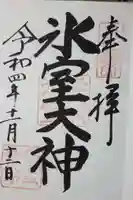 奉拝
氷室大神
令和四年十二月十二日